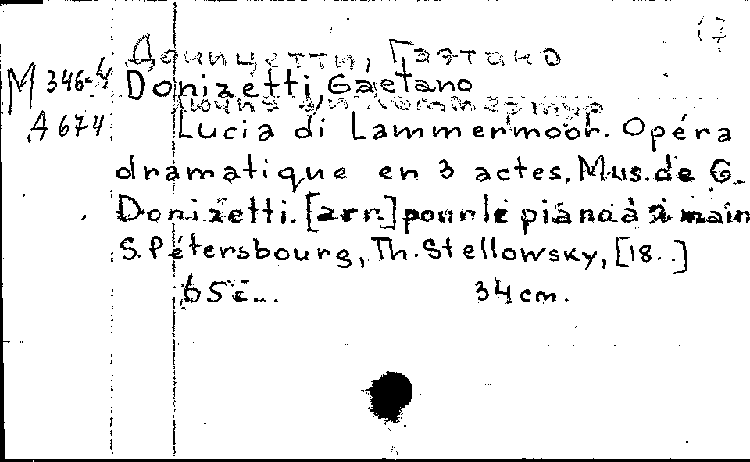 Доницетти, Гаэтано
M 346-4 Donizetti, Gaetano
Лючия ди Ламмермур
A 674 Lucia di Lammermoor. Opéra
dramatique en 3 actes. Mus. de G.
Donizetti. [arr.] pour le piano à 2 main
S. Pétersbourg, Th. Stellowsky, [18..]
65 c. 34 cm.